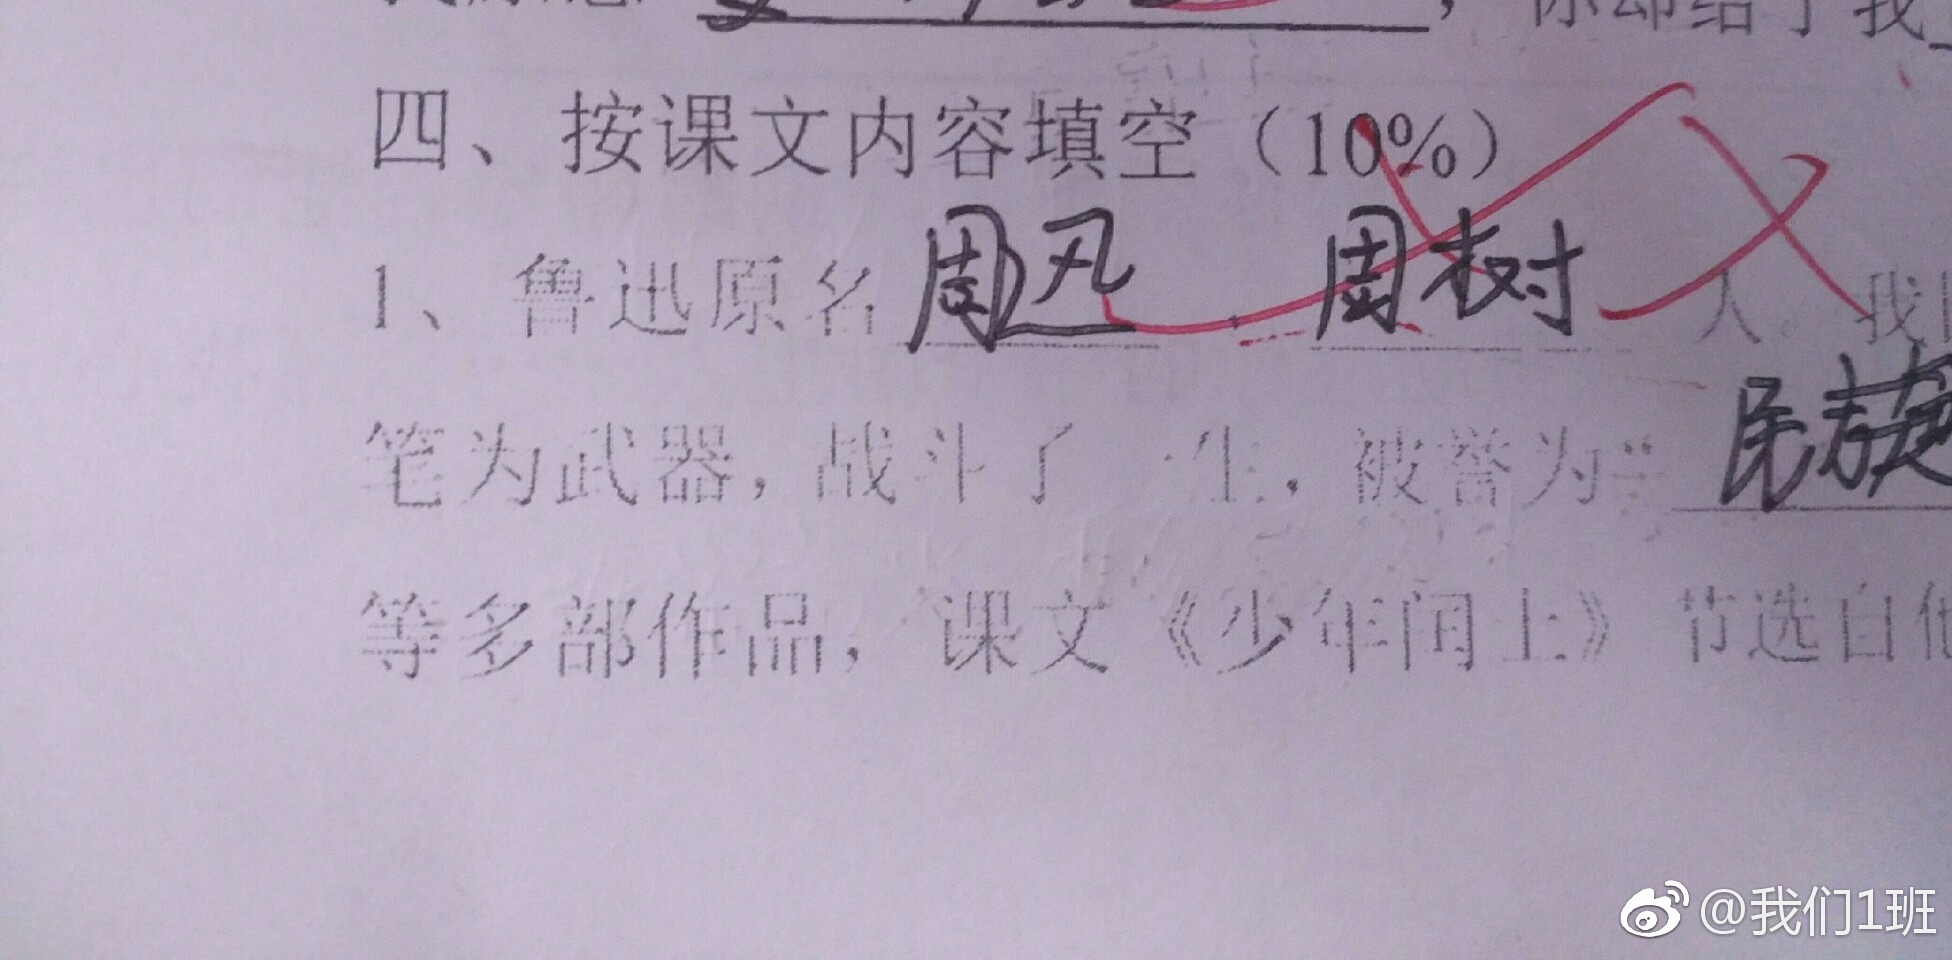 ，你却给了我
四、按课文内容填空（10%）
1、鲁迅原名周迅，周树人。我
笔为武器，战斗了一生，被誉为“民族
等多部作品，课文《少年闰土》节选自他
@我们1班